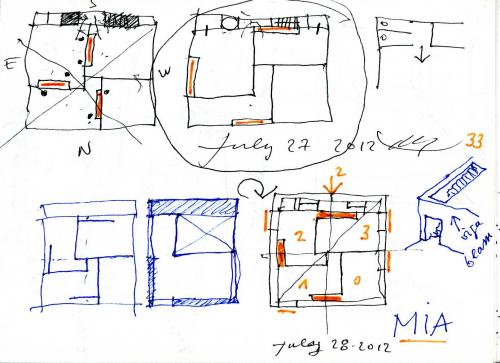 S
E
W
N
July 27 2012
33
2
2 3
1 0
viga
beam
MiA
July 28-2012